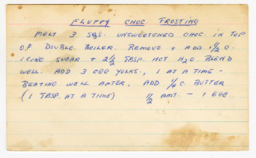 FLUFFY CHOC FROSTING
MELT 3 SQS. UNSWEETENED CHOC IN TOP
OF DOUBLE BOILER. REMOVE + ADD 1½ C.
ICING SUGAR + 2½ TBSP. HOT H2O. BLEND
WELL. ADD 3 EGG YOLKS, 1 AT A TIME -
BEATING WELL AFTER. ADD ¼ C. BUTTER
(1 TBSP. AT A TIME) ½ AMT. - 1 EGG.